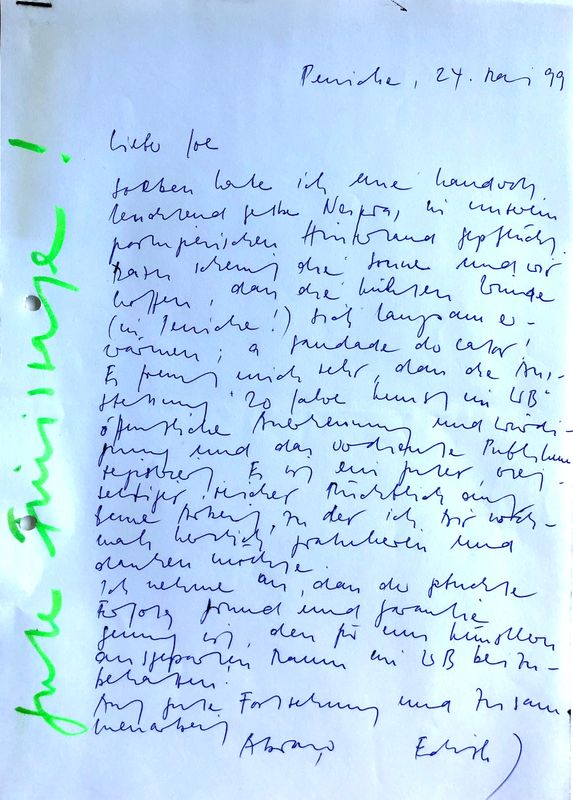 Peniche, 24. Mai 99
Lieber Joe
soeben habe ich eine handvoll
leuchtend gelbe Nespras, in unserem
portugiesischen Hinterland gepflückt.
Dazu scheint die Sonne und wir
hoffen, dass die kühlen Winde
(in Peniche!) sich langsam er-
wärmen; a saudade do calor!
Es freut mich sehr, dass die Aus-
stellung "20 Jahre Kunst im UB"
öffentliche Anerkennung und Würdi-
gung und das verdiente Publikum
registriert. Es ist ein guter,
seitiger, reicher Rückblick auf
Deine Arbeit, zu der ich Dir noch-
mals herzlich gratulieren und
danken möchte.
Ich nehme an, dass der
Erfolg Grund und Garantie
genug ist, den für uns Künstler
ausgesparten Raum im UB beizu-
behalten!
Auf gute Fortsetzung und Zusam-
menarbeit
Abraço Edith
gute Frühlingstage!